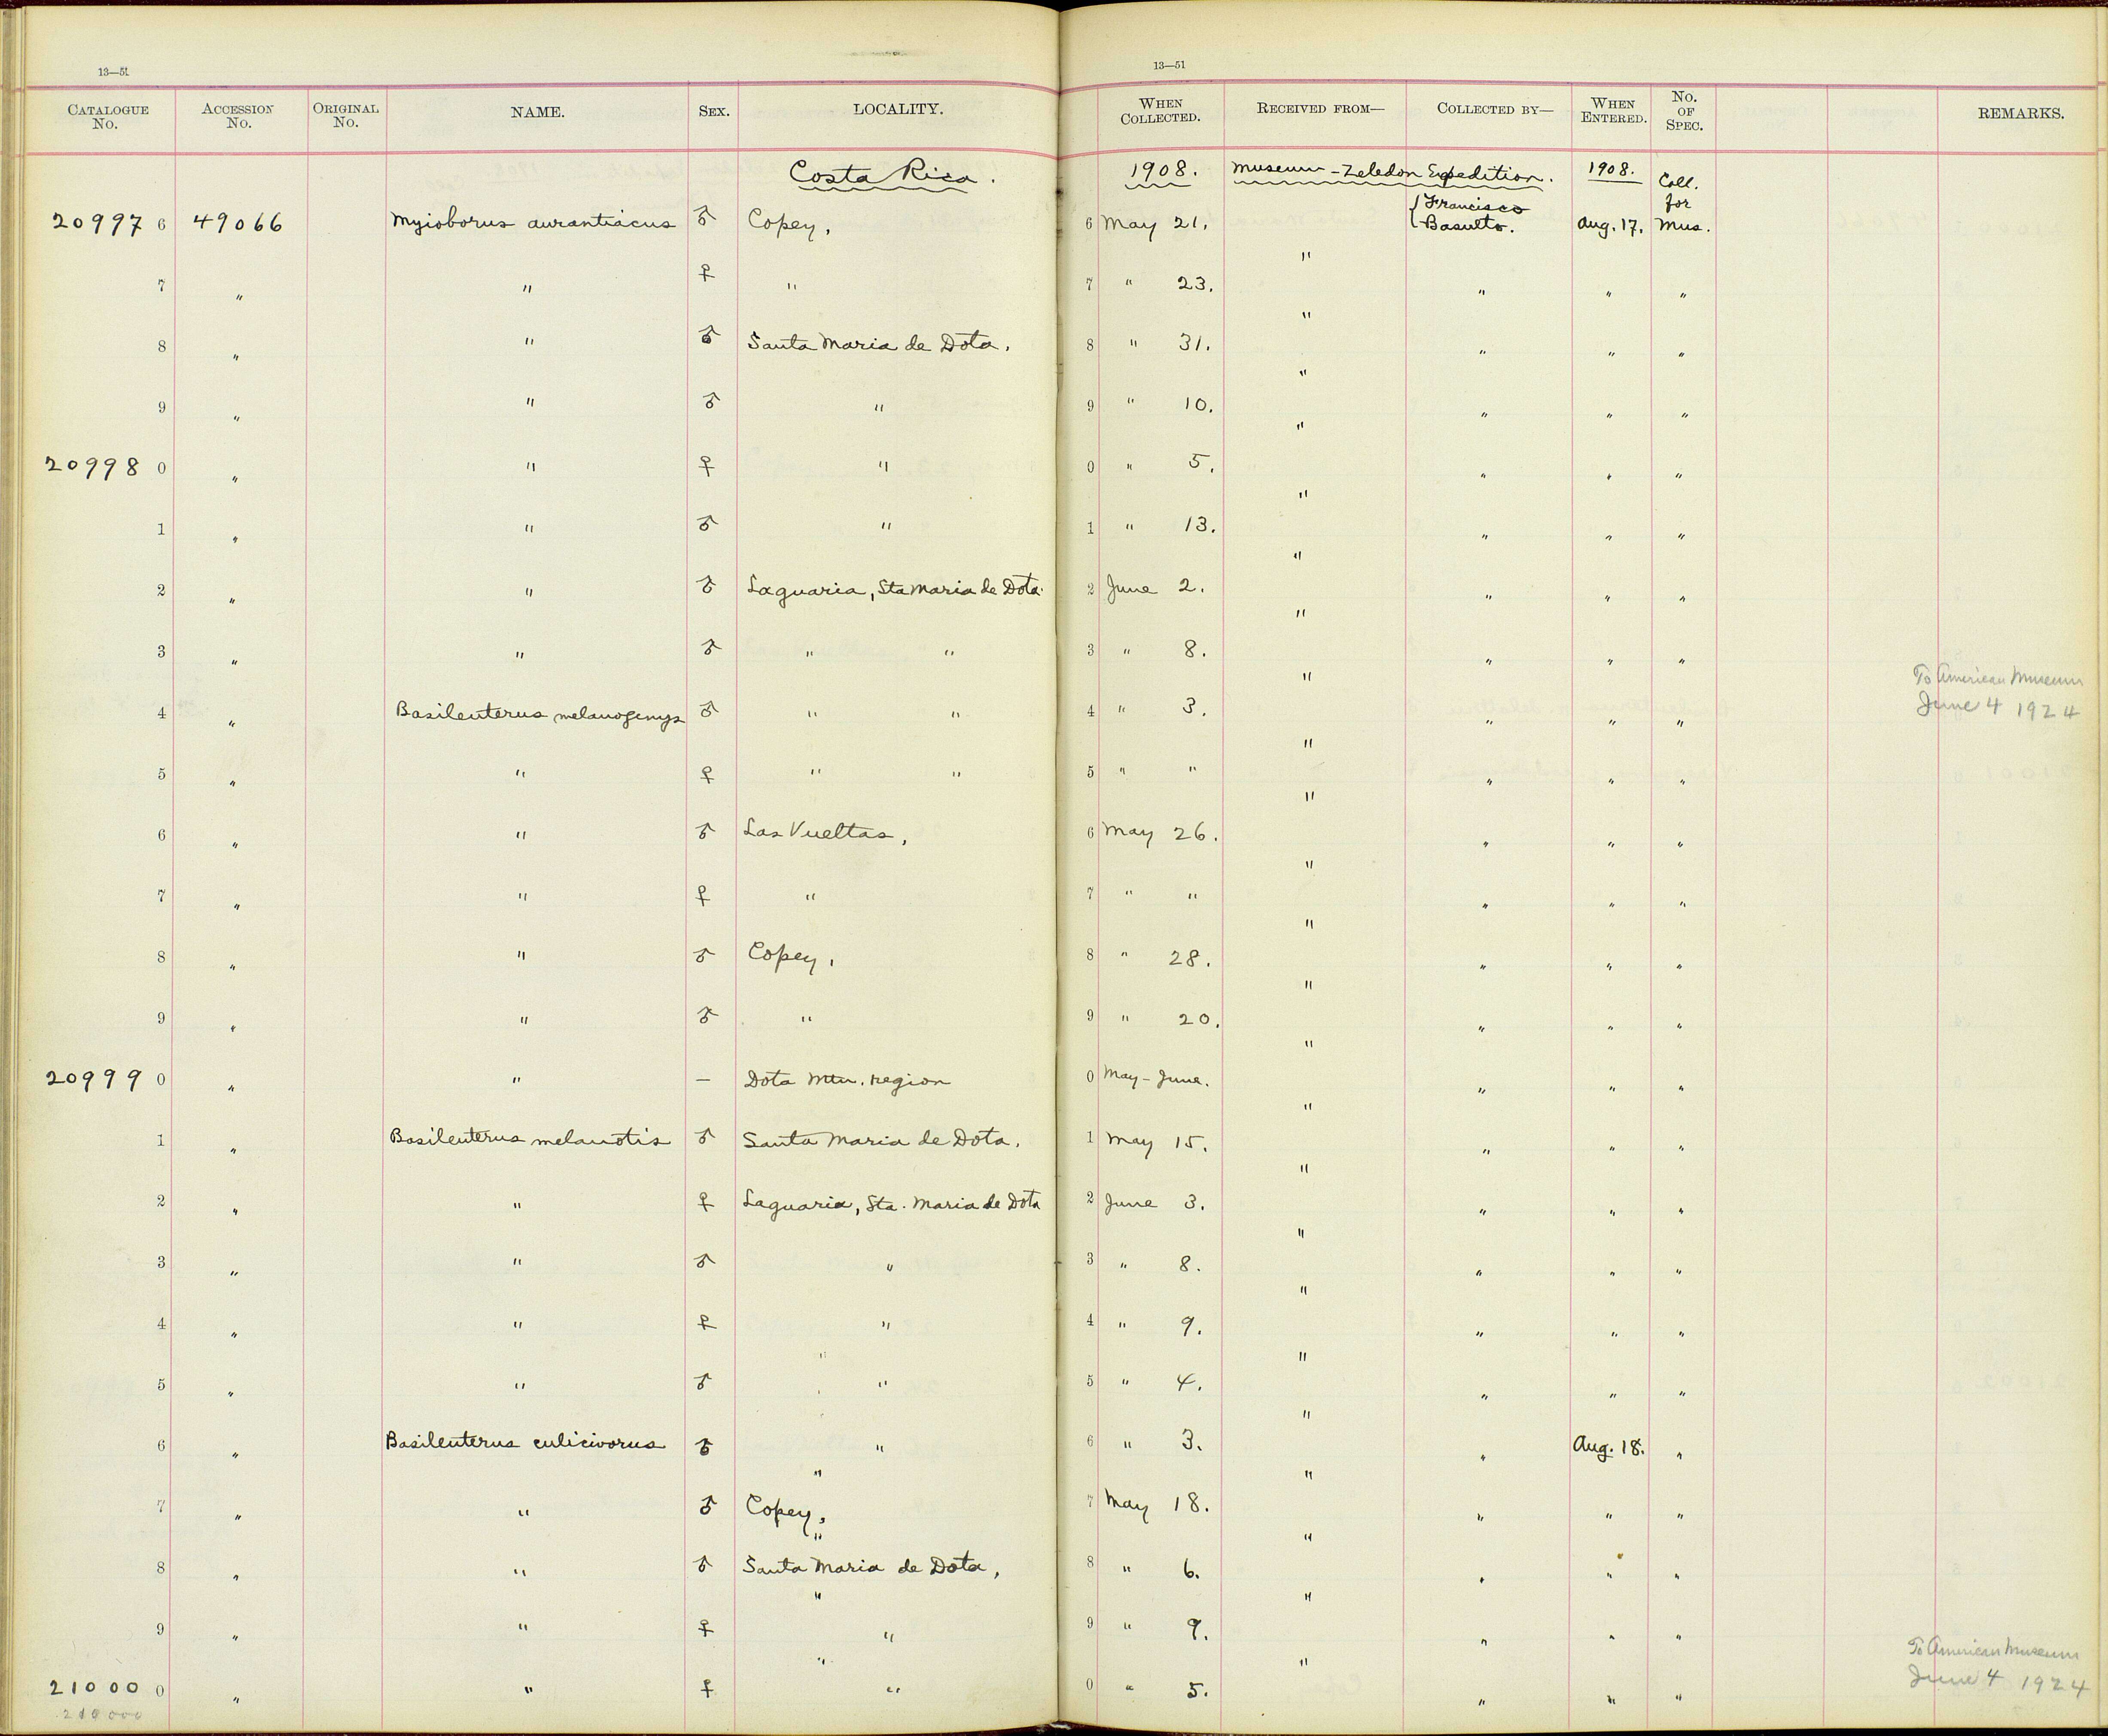 13—51
13—51
CATALOGUE No. ACCESSION No. ORIGINAL No. NAME. SEX. LOCALITY. WHEN COLLECTED. RECEIVED FROM— COLLECTED BY— WHEN ENTERED. No. OF SPEC. REMARKS.
Costa Rica. 1908. Museum-Zeledon Expedition. 1908. Coll. for
20997 6 49066 Myioborus aurantiacus ♂ Copey, 6 May 21. { Francisco Basulto. Aug. 17. Mus.
7 " " ♀ " 7 " 23. " " " "
8 " " ♂ Santa Maria de Dota. 8 " 31. " " " "
9 " " ♂ " 9 " 10. " " " "
20998 0 " " ♀ " 0 " 5. " " " "
1 " " ♂ " 1 " 13. " " " "
2 " " ♂ Laguaria, Sta Maria de Dota. 2 June 2. " " " "
3 " " ♂ " " 3 " 8. " " " "
4 " Basileuterus melanogenys ♂ " " 4 " 3. " " " " To American Museum June 4 1924
5 " " ♀ " " 5 " " " " " "
6 " " ♂ Las Vueltas, 6 May 26. " " " "
7 " " ♀ " 7 " " " " " "
8 " " ♂ Copey, 8 " 28. " " " "
9 " " ♂ " 9 " 20. " " " "
20999 0 " " — Dota Mtn. region 0 May-June. " " " "
1 " Basileuterus melanotis ♂ Santa Maria de Dota. 1 May 15. " " " "
2 " " ♀ Laguaria, Sta. Maria de Dota 2 June 3. " " " "
3 " " ♂ " 3 " 8. " " " "
4 " " ♀ " 4 " 9. " " " "
5 " " ♂ " " 5 " 4. " " " "
6 " Basileuterus culicivorus ♂ " 6 " 3. " " Aug. 18. "
7 " " ♂ Copey, " 7 May 18. " " " "
8 " " ♂ Santa Maria de Dota, " 8 " 6. " " " "
9 " " ♀ " " 9 " 9. " " " "
21000 0 " " ♀ " " 0 " 5. " " " " To American Museum June 4 1924
210000